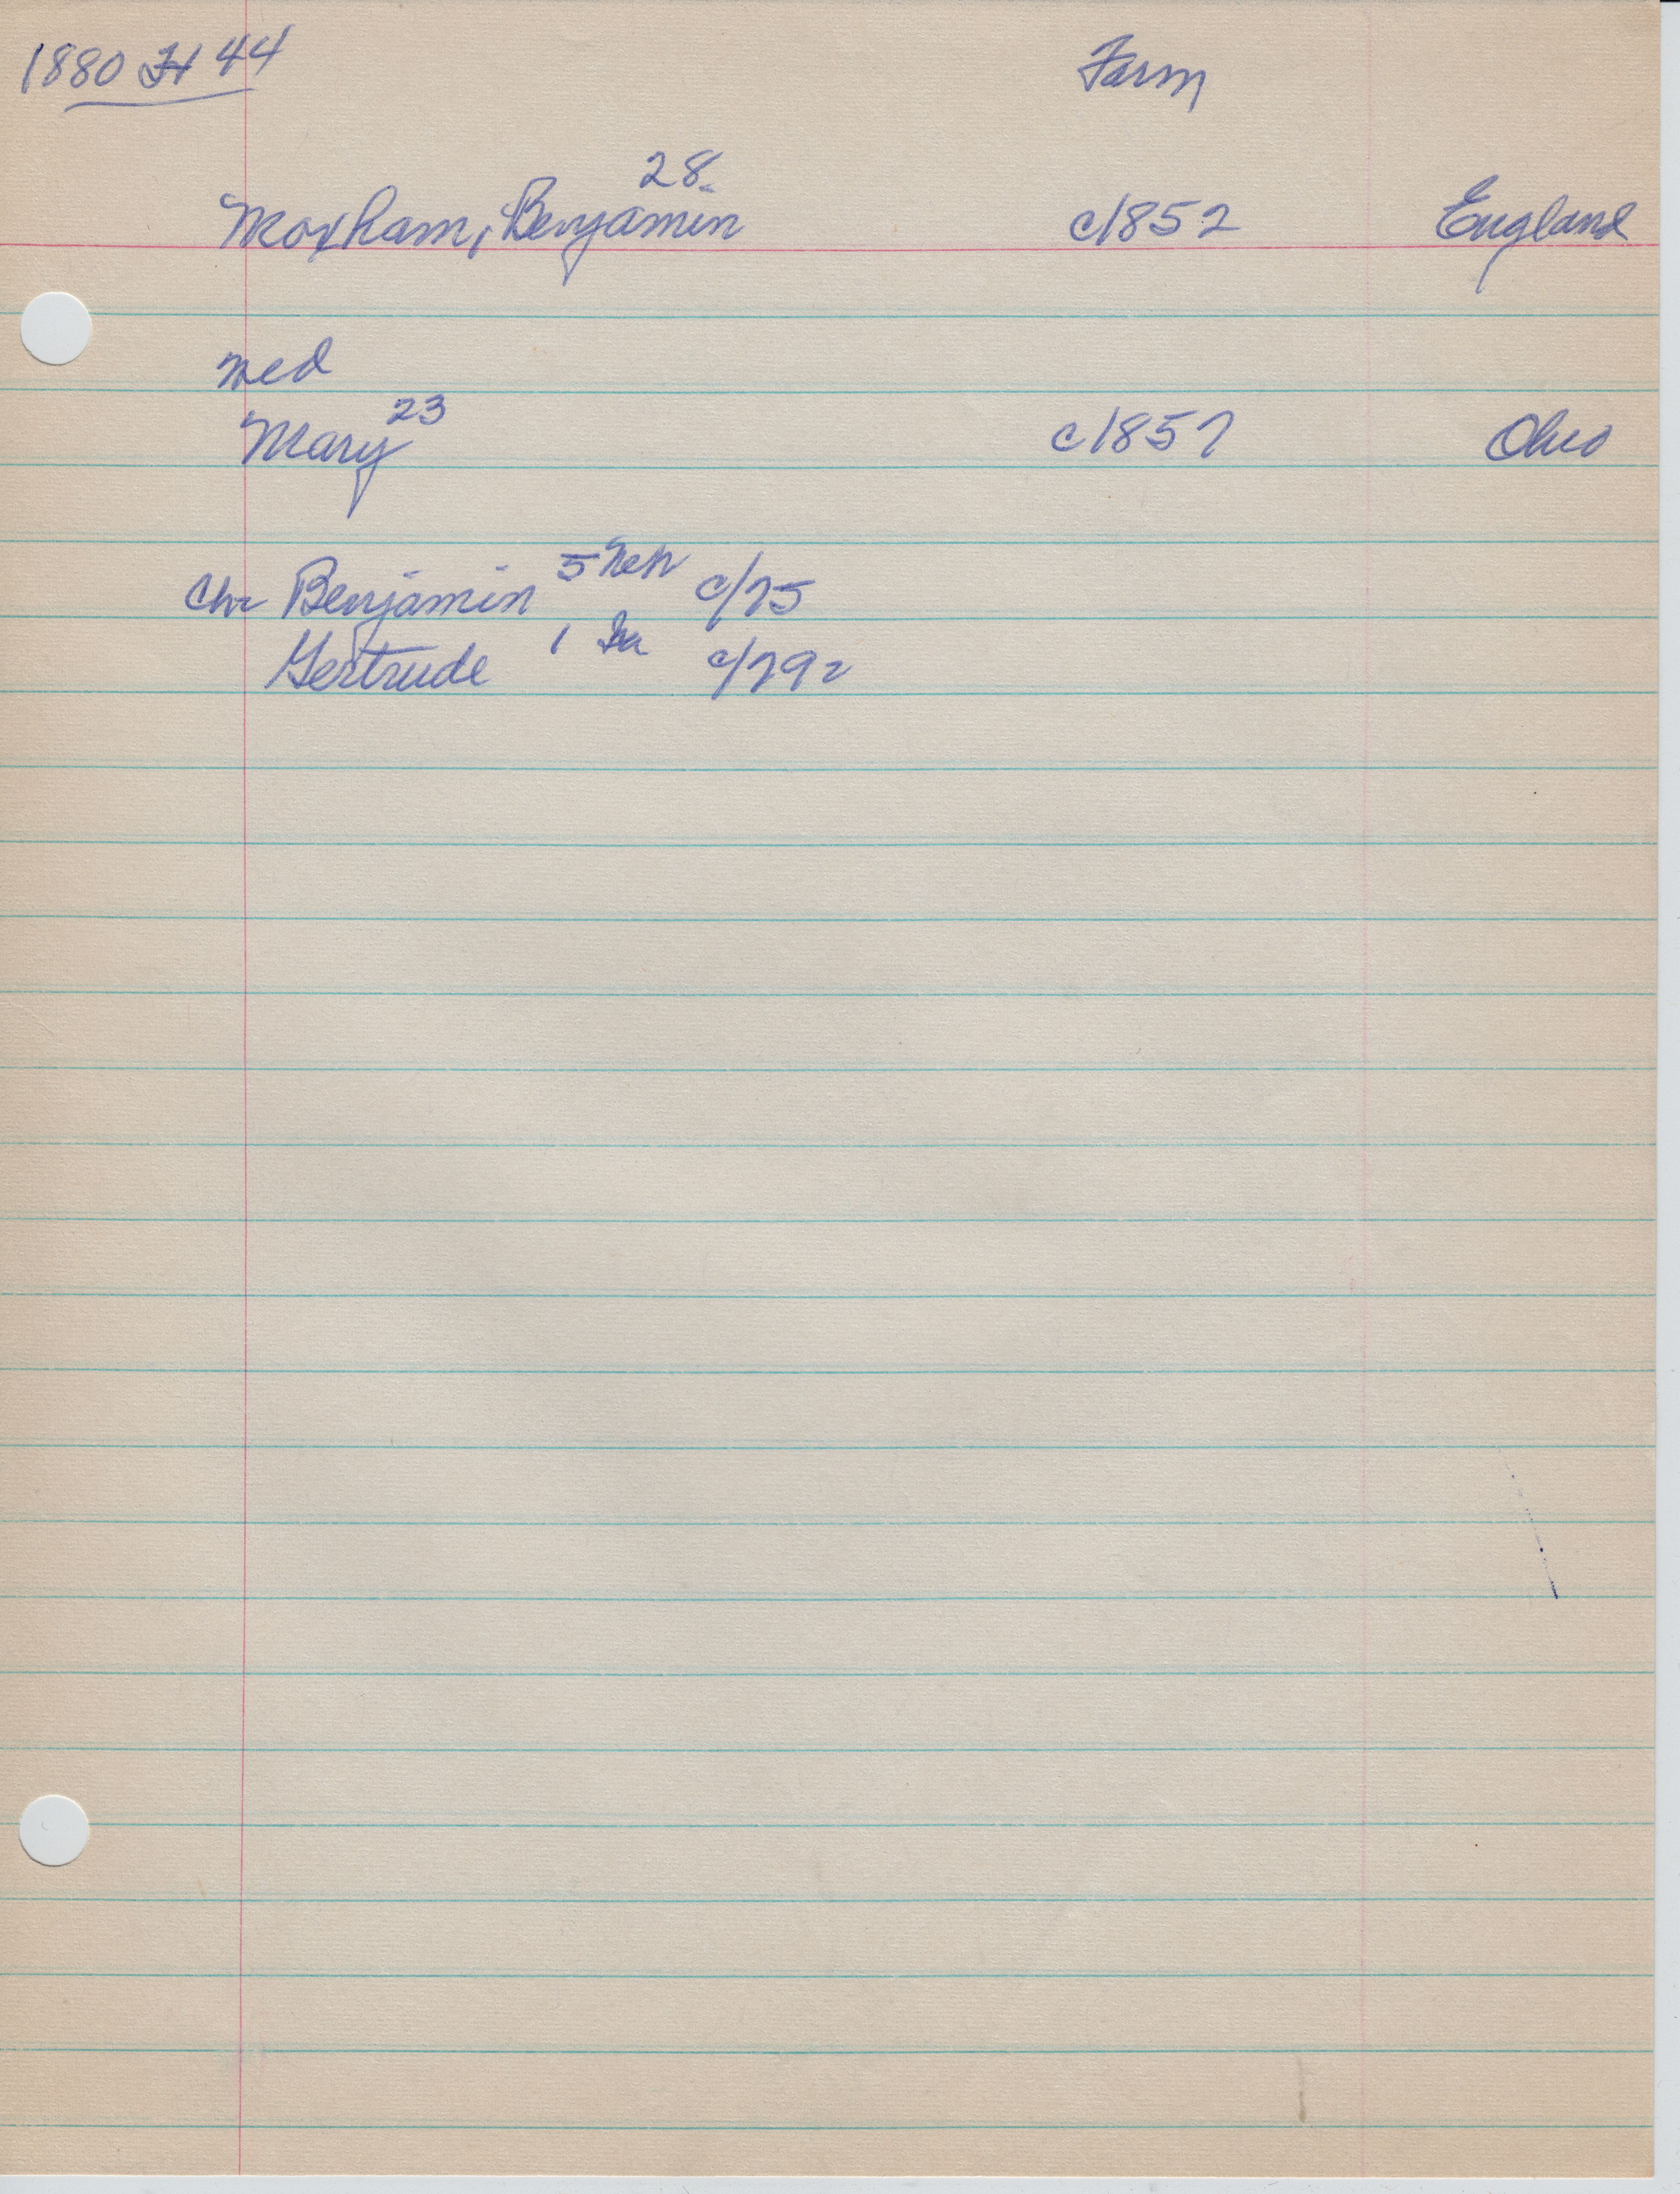 1880 H 44 Farm
28
Moxham, Benjamin c1852 England
med
23
Mary c1857 Ohio
Chr Benjamin 5 Neb c/75
Gertrude 1 Ia c/79